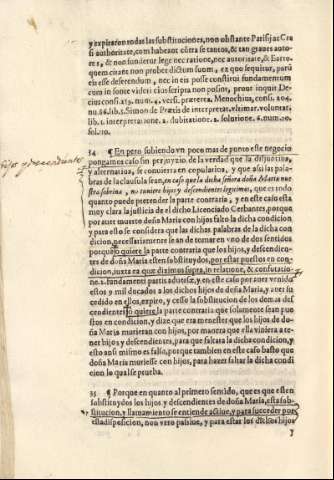 y expiraron todas las substituciones, non obstante Parisij ac Cre
si authoritate, cum habeant cõtra se tantos, & tan graues auto-
res, & non fundetur lege nec ratione, nec autoritate, &
quem citat non probet dictum suum, ex quo sequitur,
eis esse deferendum, nec in eis posse constitui fundamentum
cum in fonte videri eius scripta non possint, prout inquit De-
cius consi. num. 4. versi. præterea, Menochius, consi.
nu. lib. Simon de Prætis de interpretat. vltimar. voluntat.
lib. 1. interpretatione. 2. dubitatione. 2. solutione. 6. num.
fol.
34 ¶ En pero subiendo vn poco mas de punto este negocio
pongamos caso sin perjuyzio de la verdad que la disjuntiua,
y alternatiua, se conuierta en copulatiua, y que assi las pala-
bras de la clausula sean, en caso que la dicha señora doña Maria nue
stra sobrina, no tuuiere hijos y descendientes legitimos, que es todo
quanto puede pretender la parte contraria, y en este caso esta
muy clara la justicia de el dicho Licenciado Cerbantes, porque
por auer muerto doña Maria con hijos falto la dicha condicion
y para esto se considera que las dichas palabras de la dicha con
dicion, necessariamente se an de tomar en vno de dos sentidos
porque o quiere la parte contraria que los hijos, y descendien-
tes de doña Maria esten substituydos, por estar puestos en con-
dicion, juxta ea que diximus supra, in relatione, & confutatio-
ne. 2. fundamenti partis aduersæ, y en este caso por auer venido
estos y mil ducados a los hijos de doña Maria, y auer su
cedido en ellos, expiro, y cesso la substitucion de los demas des
cendientes, o quiere la parte contraria que solamente sean pue
stos en condicion, y dize que era menester que los hijos de do-
ña Maria murieran con hijos, por manera que ella viniera a te-
ner hijos y descendientes, para que faltara la dicha condicion, y
esto ansi mismo es falso, porque tambien en este caso basto que
doña Maria muriesse con hijos, para hazer faltar la dicha condi
cion lo qual se prueba.
35 ¶ Porque en quanto al primero sentido, que es que esten
substituydos los hijos y descendientes de doña Maria, esta sub-
stitucion, y llamamiento se entiende actiue, y para succeder por
esta disposicion, non vero passiue, y para estar los dichos hijos
y
hijo y descendiente